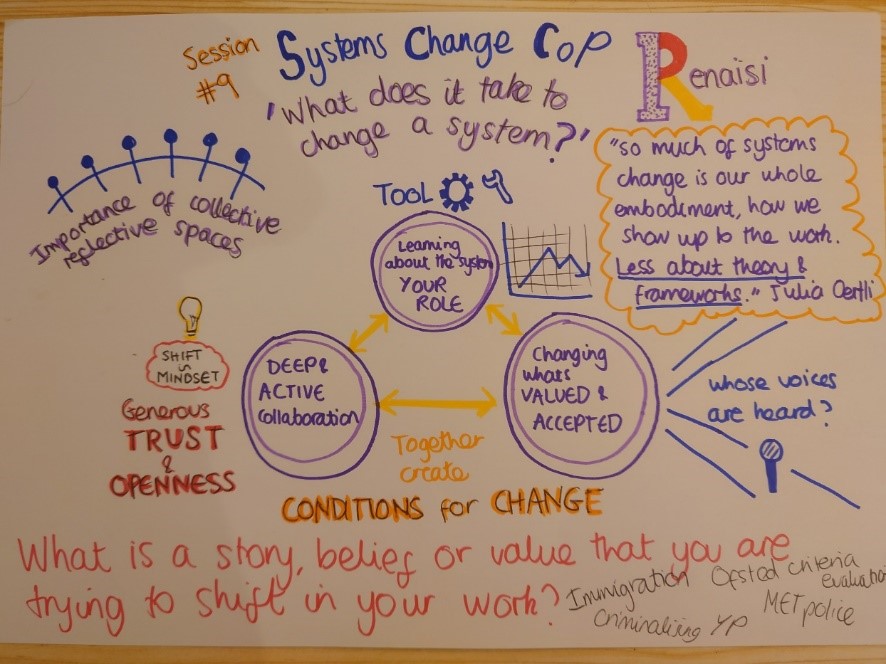 Session
#9
Systems Change CoP
Renaisi
'What does it take to
change a system?'
Importance of collective
reflective spaces
TOOL
Learning
about the system
YOUR
ROLE
"So much of systems
change is our whole
embodiment, how we
show up to the work.
Less about theory &
frameworks." Julia Oertli
SHIFT
in
MINDSET
Generous
TRUST
&
OPENNESS
DEEP &
ACTIVE
Collaboration
Changing
whats
VALUED &
ACCEPTED
whose voices
are heard?
Together
create
CONDITIONS for CHANGE
What is a story, belief or value that you are
trying to shift in your work?
Immigration
Ofsted criteria
evaluation
Criminalising YP
MET police